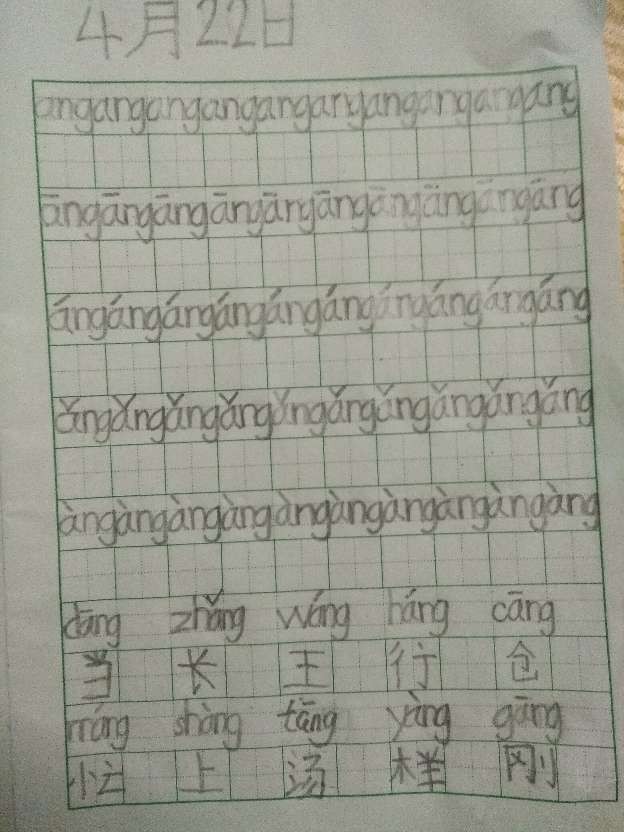 4月22日
angangangangangangangangangang
āngāngāngāngāngāngāngāngāngāng
ángángángángángángángángángáng
ǎngǎngǎngǎngǎngǎngǎngǎngǎngǎng
àngàngàngàngàngàngàngàngàngàng
dāng zhǎng wáng háng cāng
当 长 王 行 仓
máng shàng tāng yàng gāng
忙 上 汤 样 刚